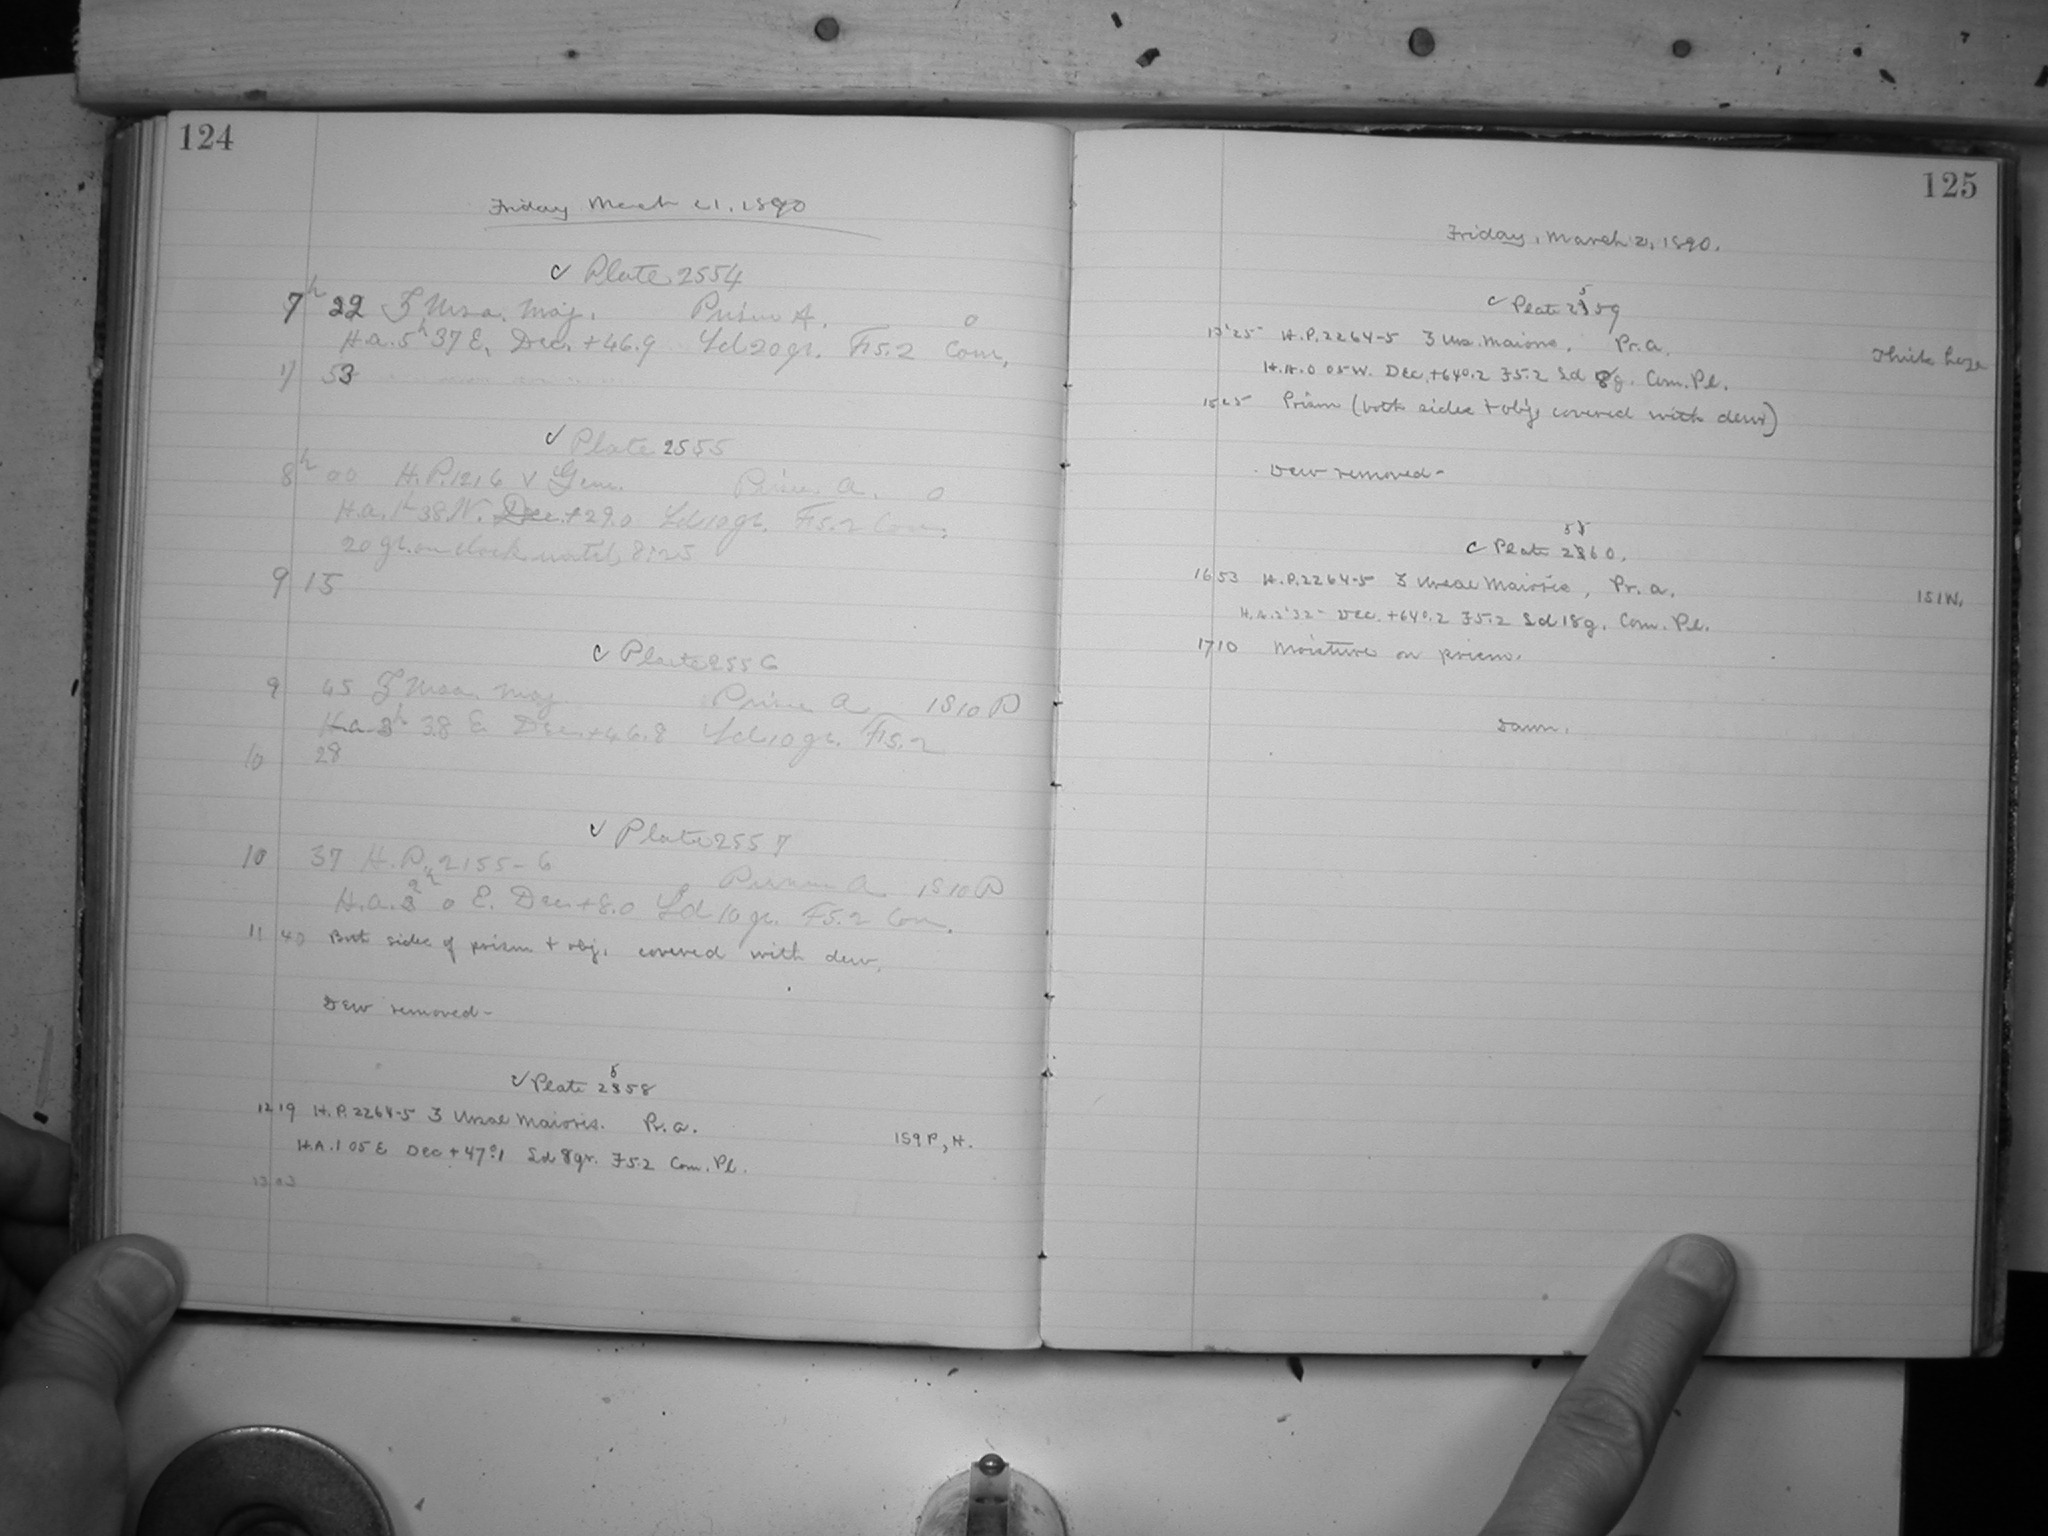 124
Friday March 21, 1890
c Plate 2554
7h 22 ζ Ursa. Maj. Prism A. 0
H.a. 5h 37 E. Dec. +46.9 Ld 20 gr. F 5.2 Com.
7 53
c Plate 2555
8h 00 H.P. 1216 ν Gem. Prism A. 0
H.a. 1h 38 W. Dec. +29.0 Ld 10 gr. F 5.2 Com.
20 gr. on clock until 8:25
9 15
c Plate 2556
9 45 ζ Ursa. Maj. Prism A 1S10P
H.a. 3h 38 E Dec. +46.8 Ld 10 gr. F 5.2
10 28
c Plate 2557
10 37 H.P. 2155-6 Prism A 1S10P
H.a. 2h 0 E. Dec. +8.0 Ld 10 gr. F 5.2 Com.
11 40 Both sides of prism + obj. covered with dew.
Dew removed-
c Plate 2558
12 19 H.P. 2264-5 ζ Ursae Maioris. Pr. a. 1S9P, H.
H.A. 1 05 E Dec +47°.1 Ld 8 gr. F 5.2 Com. Pl.
13 03
125
Friday, March 21, 1890.
c Plate 2559
13 25 H.P. 2264-5 ζ Urs. Maioris. Pr. a. Thick haze
H.A. 0 05 W. Dec. +64°.2 F 5.2 Ld 8g. Com. Pl.
15 25 Prism (both sides + obj. covered with dew)
Dew removed-
c Plate 2560.
16 53 H.P. 2264-5 ζ Ursae Maioris, Pr. a. 1S1W.
H.A. 2h 32 Dec. +64°.2 F 5.2 Ld 18g. Com. Pl.
17 10 Moisture on prism.
Dawn.